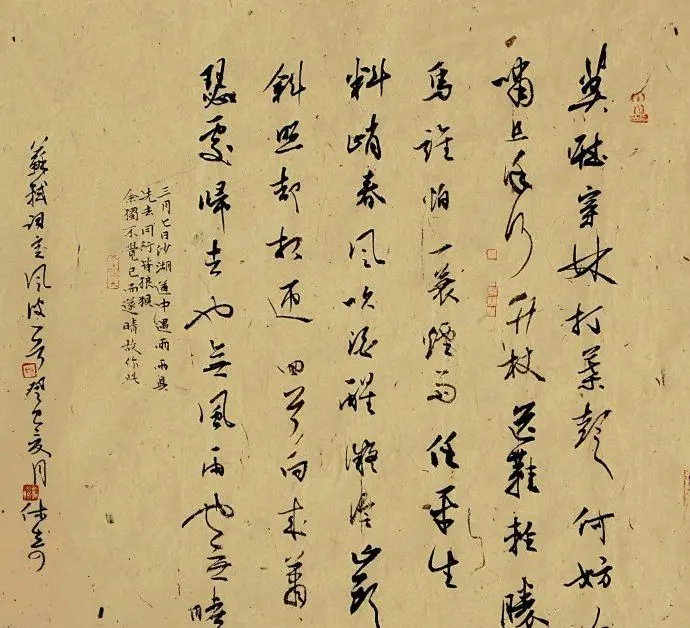 莫聽穿林打葉聲何妨
嘯且徐行竹杖芒鞋輕勝
馬誰怕一蓑煙雨任平生
料峭春風吹酒醒微冷山頭
斜照卻相迎回首向來蕭
瑟處歸去也無風雨也無晴
三月七日沙湖道中遇雨雨具
先去同行皆狼狽
余獨不覺已而遂晴故作此
蘇軾詞定風波一首癸巳夏月